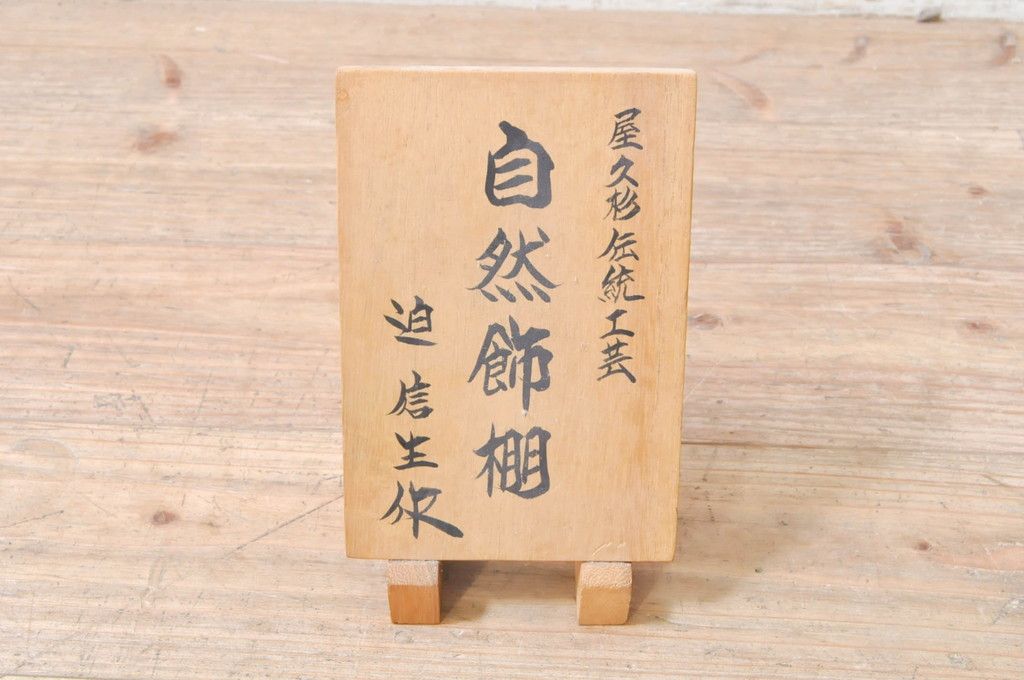 屋久杉伝統工芸
自然飾棚
迫信生作